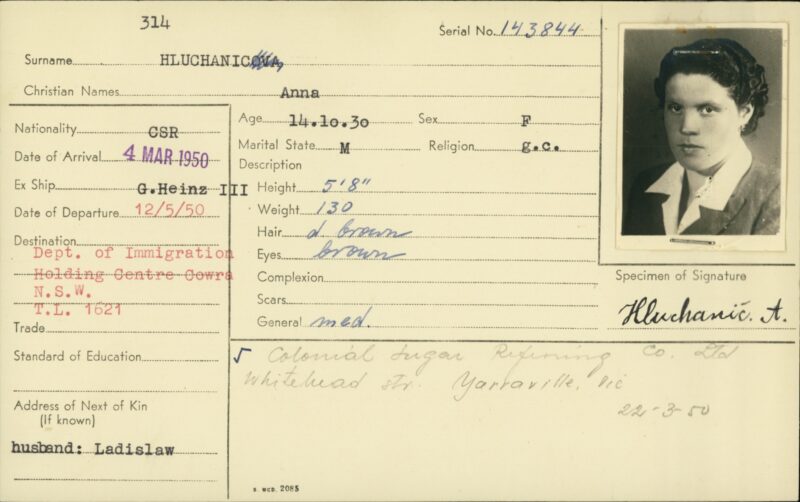 314
Serial No. 143844
Surname HLUCHANICOVA
Christian Names Anna
Nationality CSR
Date of Arrival 4 MAR 1950
Ex Ship G.Heinz III
Date of Departure 12/5/50
Destination
Dept. of Immigration
Holding Centre Cowra
N.S.W.
T.L. 1621
Trade
Standard of Education
Address of Next of Kin
(If known)
husband: Ladislaw
Age 14.10.30 Sex F
Marital State M Religion g.c.
Description
Height 5'8"
Weight 130
Hair d brown
Eyes brown
Complexion
Scars
General med.
Specimen of Signature
Hluchanič. A.
√ Colonial Sugar Refining Co. Ltd
Whitehead Str. Yarraville, Vic
22-3-50
S. WCD. 2085